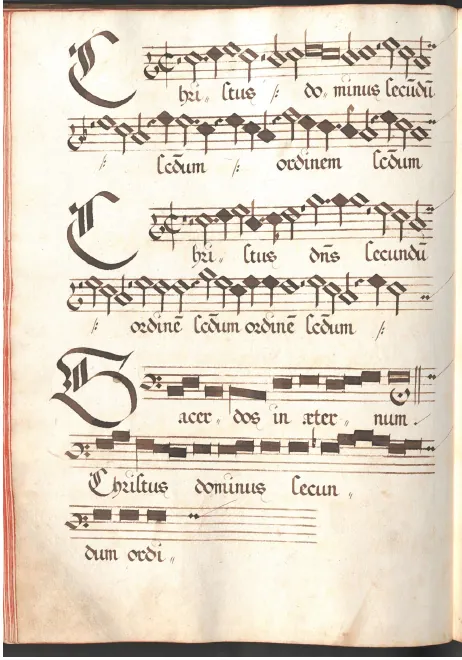 Chri„ ſtus /: do„ minus ſecūdū
/: ſcd̄um /: ordinem ſcd̄um
Chri„ ſtus dn̄s ſecundū
/: ordinē ſcd̄um ordinē ſcd̄um /:
Sacer„ dos in æter„ num
Chriſtus dominus ſecun„
dum ordi„